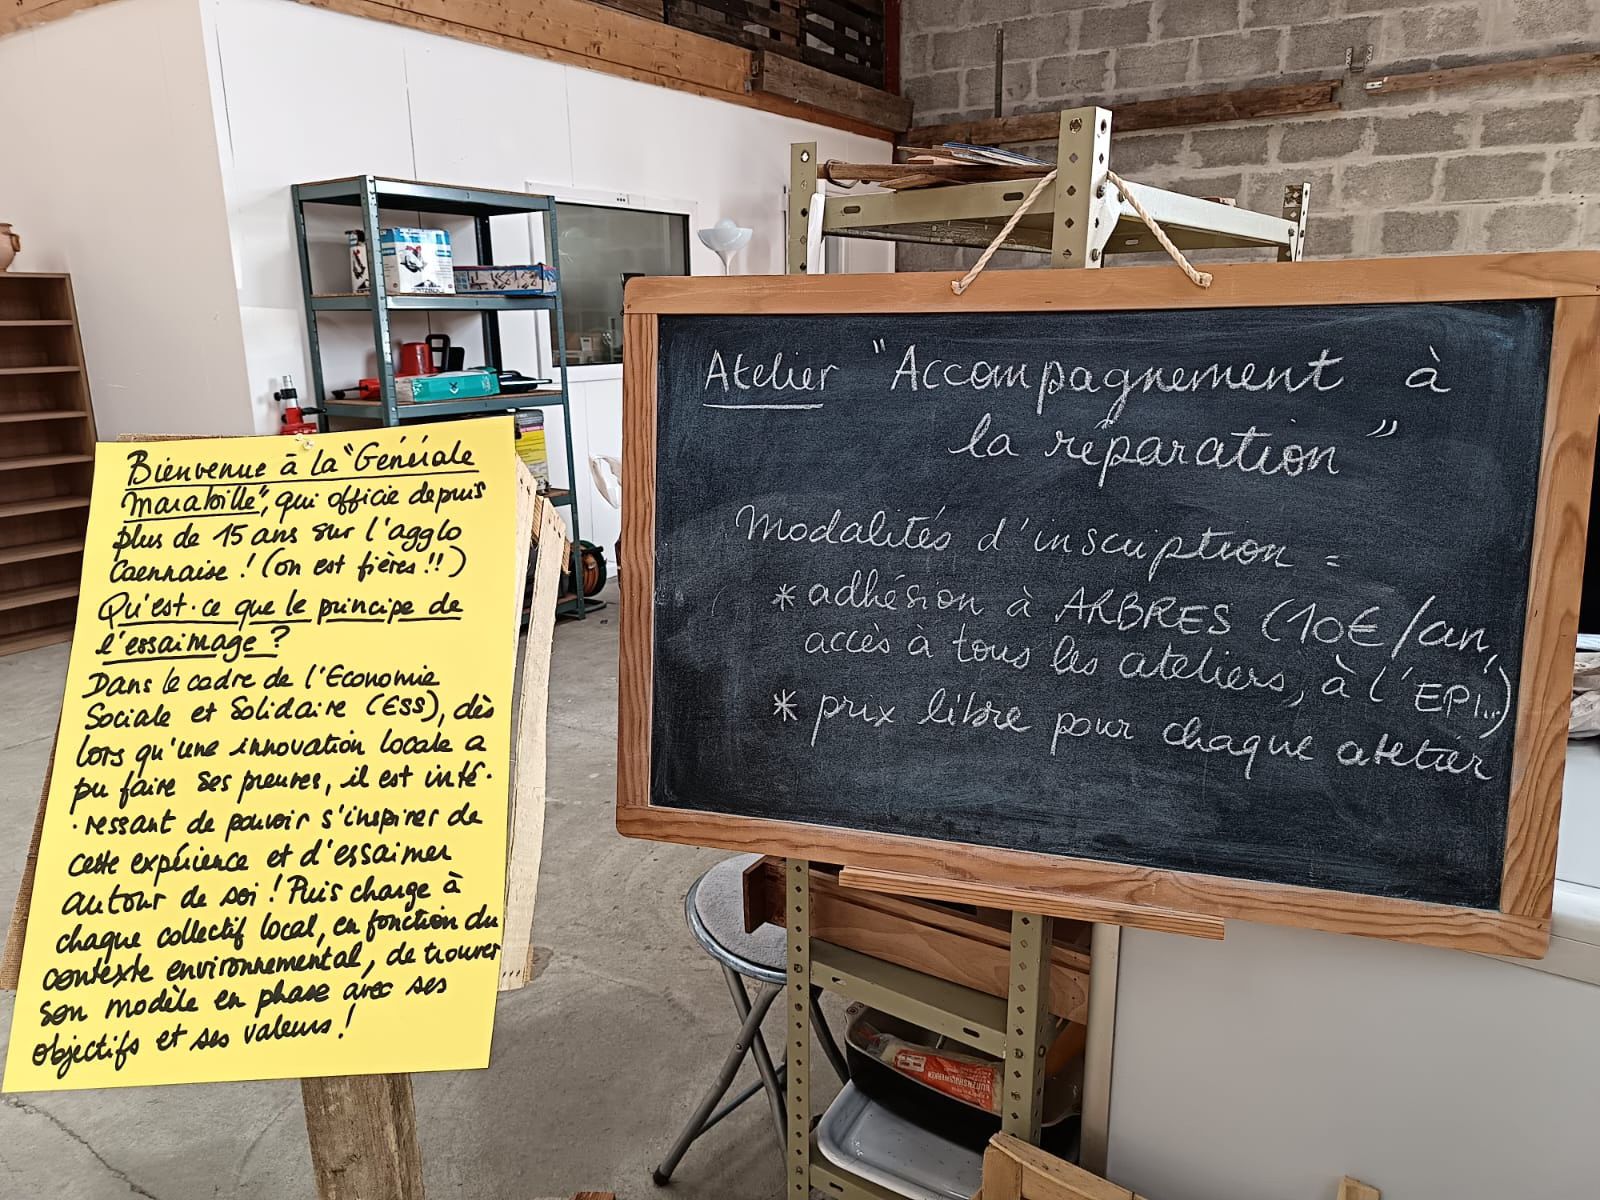 Bienvenue à la "Générale
Maraboille", qui officie depuis
plus de 15 ans sur l'agglo
Caennaise ! (on est fières !!)
Qu'est-ce que le principe de
l'essaimage ?
Dans le cadre de l'Economie
Sociale et Solidaire (ESS), dès
lors qu'une innovation locale a
pu faire ses preuves, il est inté-
-ressant de pouvoir s'inspirer de
cette expérience et d'essaimer
autour de soi ! Puis charge à
chaque collectif local, en fonction du
contexte environnemental, de trouver
son modèle en phase avec ses
objectifs et ses valeurs !
Atelier "Accompagnement à
la réparation"
Modalités d'inscription =
* adhésion à ARBRES (10€/an,
accès à tous les ateliers, à l'EPI...)
* prix libre pour chaque atelier